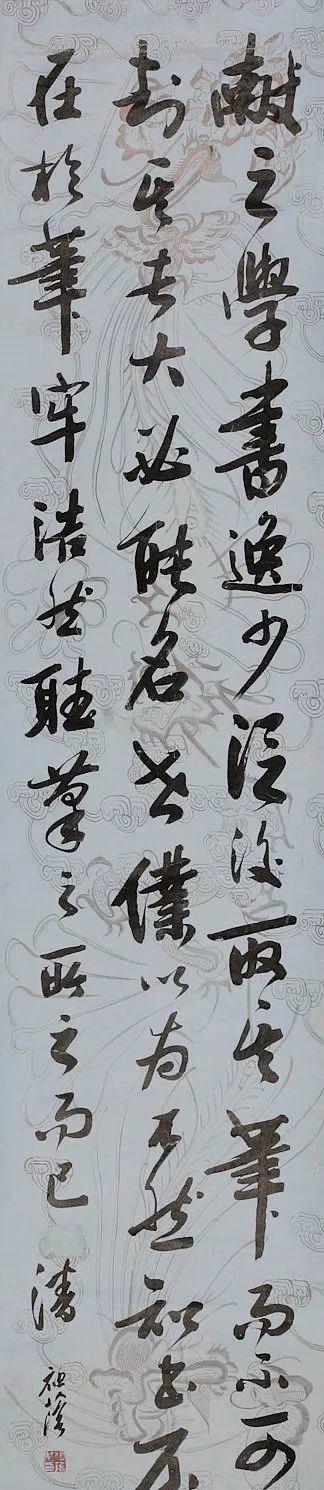 獻之學書逸少從後取其筆而不可
知其長大必能名世僕以為不然知書不
在於筆牢浩然聽筆之所之而已
潘祖蔭